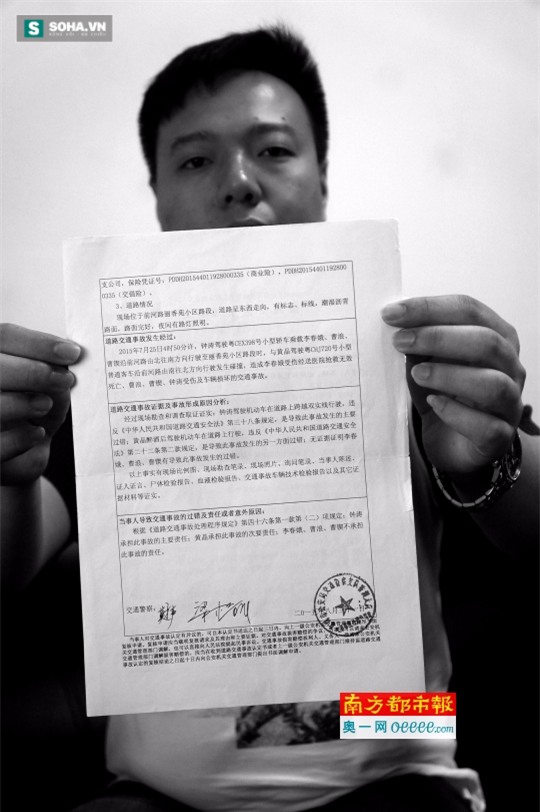 SOHA.VN
支公司，保险凭证号：PDDH20154401192800O335（商业险），PDDH201544011928000
0335（交强险）。
3、道路情况
现场位于前河路丽香苑小区路段，道路呈东西走向，有标志、标线，潮湿沥青
路面，路面完好，夜间有路灯照明。
道路交通事故发生经过：
2015年7月25日4时50分许，钟涛驾驶粤CEX398号小型轿车乘载李春娥、曹浪、
曹锲沿前河路由北往南方向行驶至丽香苑小区路段时，与黄晶驾驶粤CRJ720号小型
普通客车沿前河路由南往北方向行驶发生碰撞，造成李春娥受伤经送医院抢救无效
死亡，曹浪、曹锲、钟涛受伤及车辆损坏的交通事故。
道路交通事故证据及事故形成原因分析：
经过现场勘查和调查取证证实：钟涛驾驶机动车在道路上跨越双实线行驶，违
反《中华人民共和国道路交通安全法》第三十八条规定，是导致此事故发生的主要
过错；黄晶醉酒后驾驶机动车在道路上行驶，违反《中华人民共和国道路交通安全
法》第二十二条第二款规定，是导致此事故发生的另一方面过错；无证据证明李春
娥、曹浪、曹锲有导致此事故发生的过错。
以上事实有现场比例图、现场勘查笔录、现场照片、询问笔录、当事人陈述、
证人证言、尸体检验报告、血液检验报告、交通事故车辆技术检验报告以及其它证
据材料等证实。
当事人导致交通事故的过错及责任或者意外原因：
根据《道路交通事故处理程序规定》第四十六条第一款第（二）项规定：钟涛
承担此事故的主要责任；黄晶承担此事故的次要责任；李春娥、曹浪、曹锲不承担
此事故的责任。
交通警察：
二〇一
南方都市報
奥一网 oeeee.com